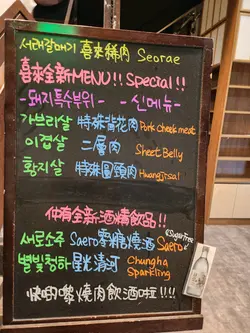 서래갈매기 喜來稀肉 Seorae
喜來全新MENU!! Special!!
-돼지특수부위- -신메뉴-
가브리살 特殊背花肉 Pork cheek meat
이겹살 二層肉 Sheet Belly
황지살 特殊圓頭肉 Huangjisal
仲有全新酒精飲品!!
새로소주 Saero零糖燒酒 Saero Sugar Free
별빛청하 星光清河 Chungha Sparkling
快啲嚟燒肉飲酒啦!!!